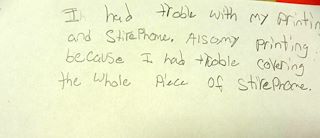 I had troble with my printin
and StirePhome. Also my printing
because I had trooble covering
the whole Piece of StirePhome.